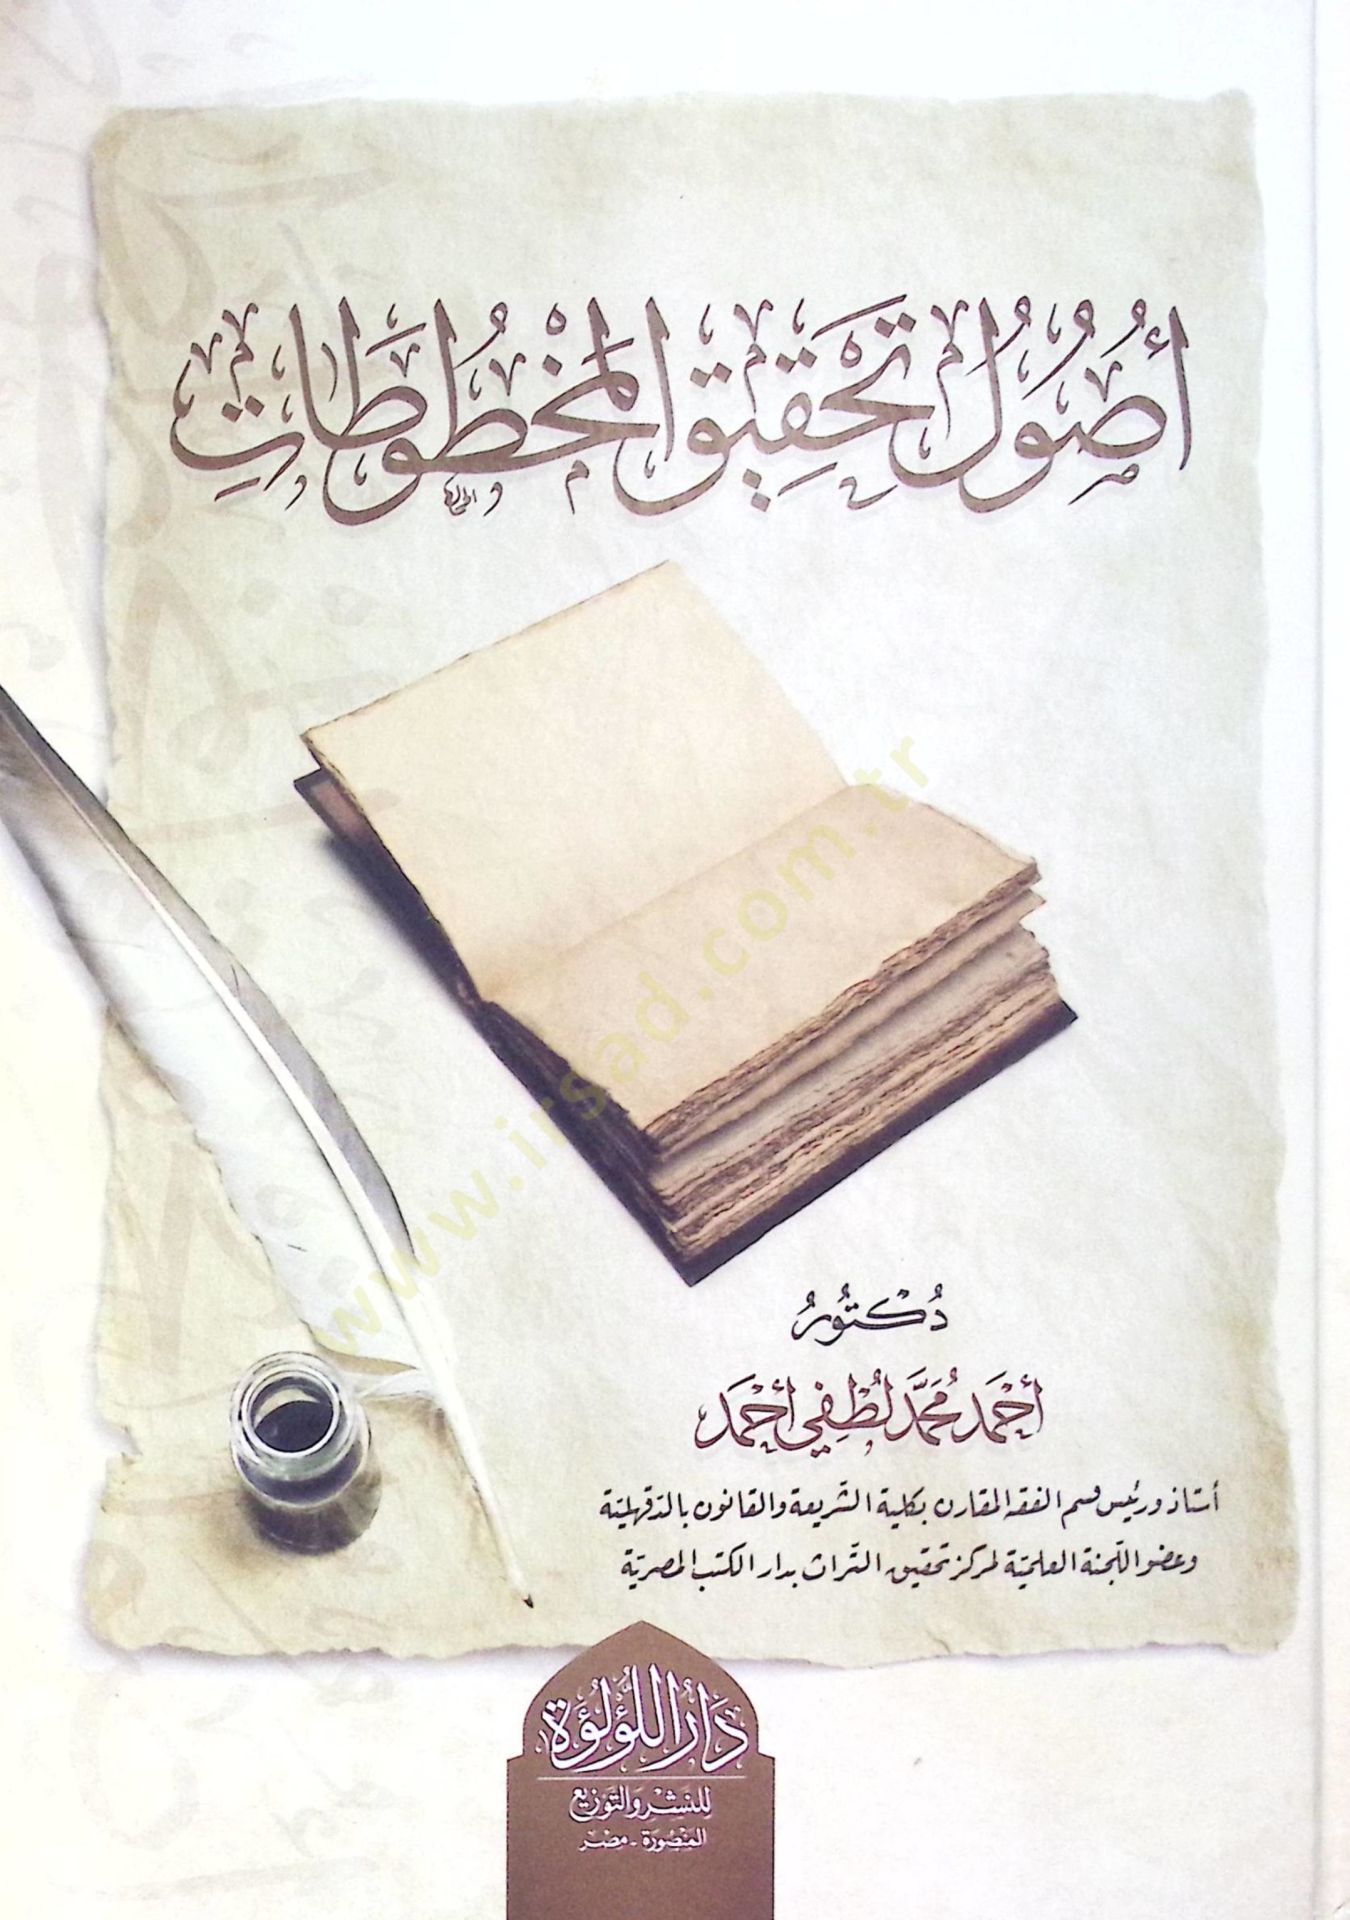 أُصُولُ تَحْقِيقِ المَخْطُوطَاتِ
دُكْتُورُ
أَحْمَد مُحَمَّد لُطْفِي أَحْمَد
أستاذ ورئيس قسم الفقه المقارن بكلية الشريعة والقانون بالدقهلية
وعضو اللجنة العلمية لمركز تحقيق التراث بدار الكتب المصرية
www.irsad.com.tr
دَارُ اللُّؤْلُؤَة
للنشر والتوزيع
المنصورة - مصر